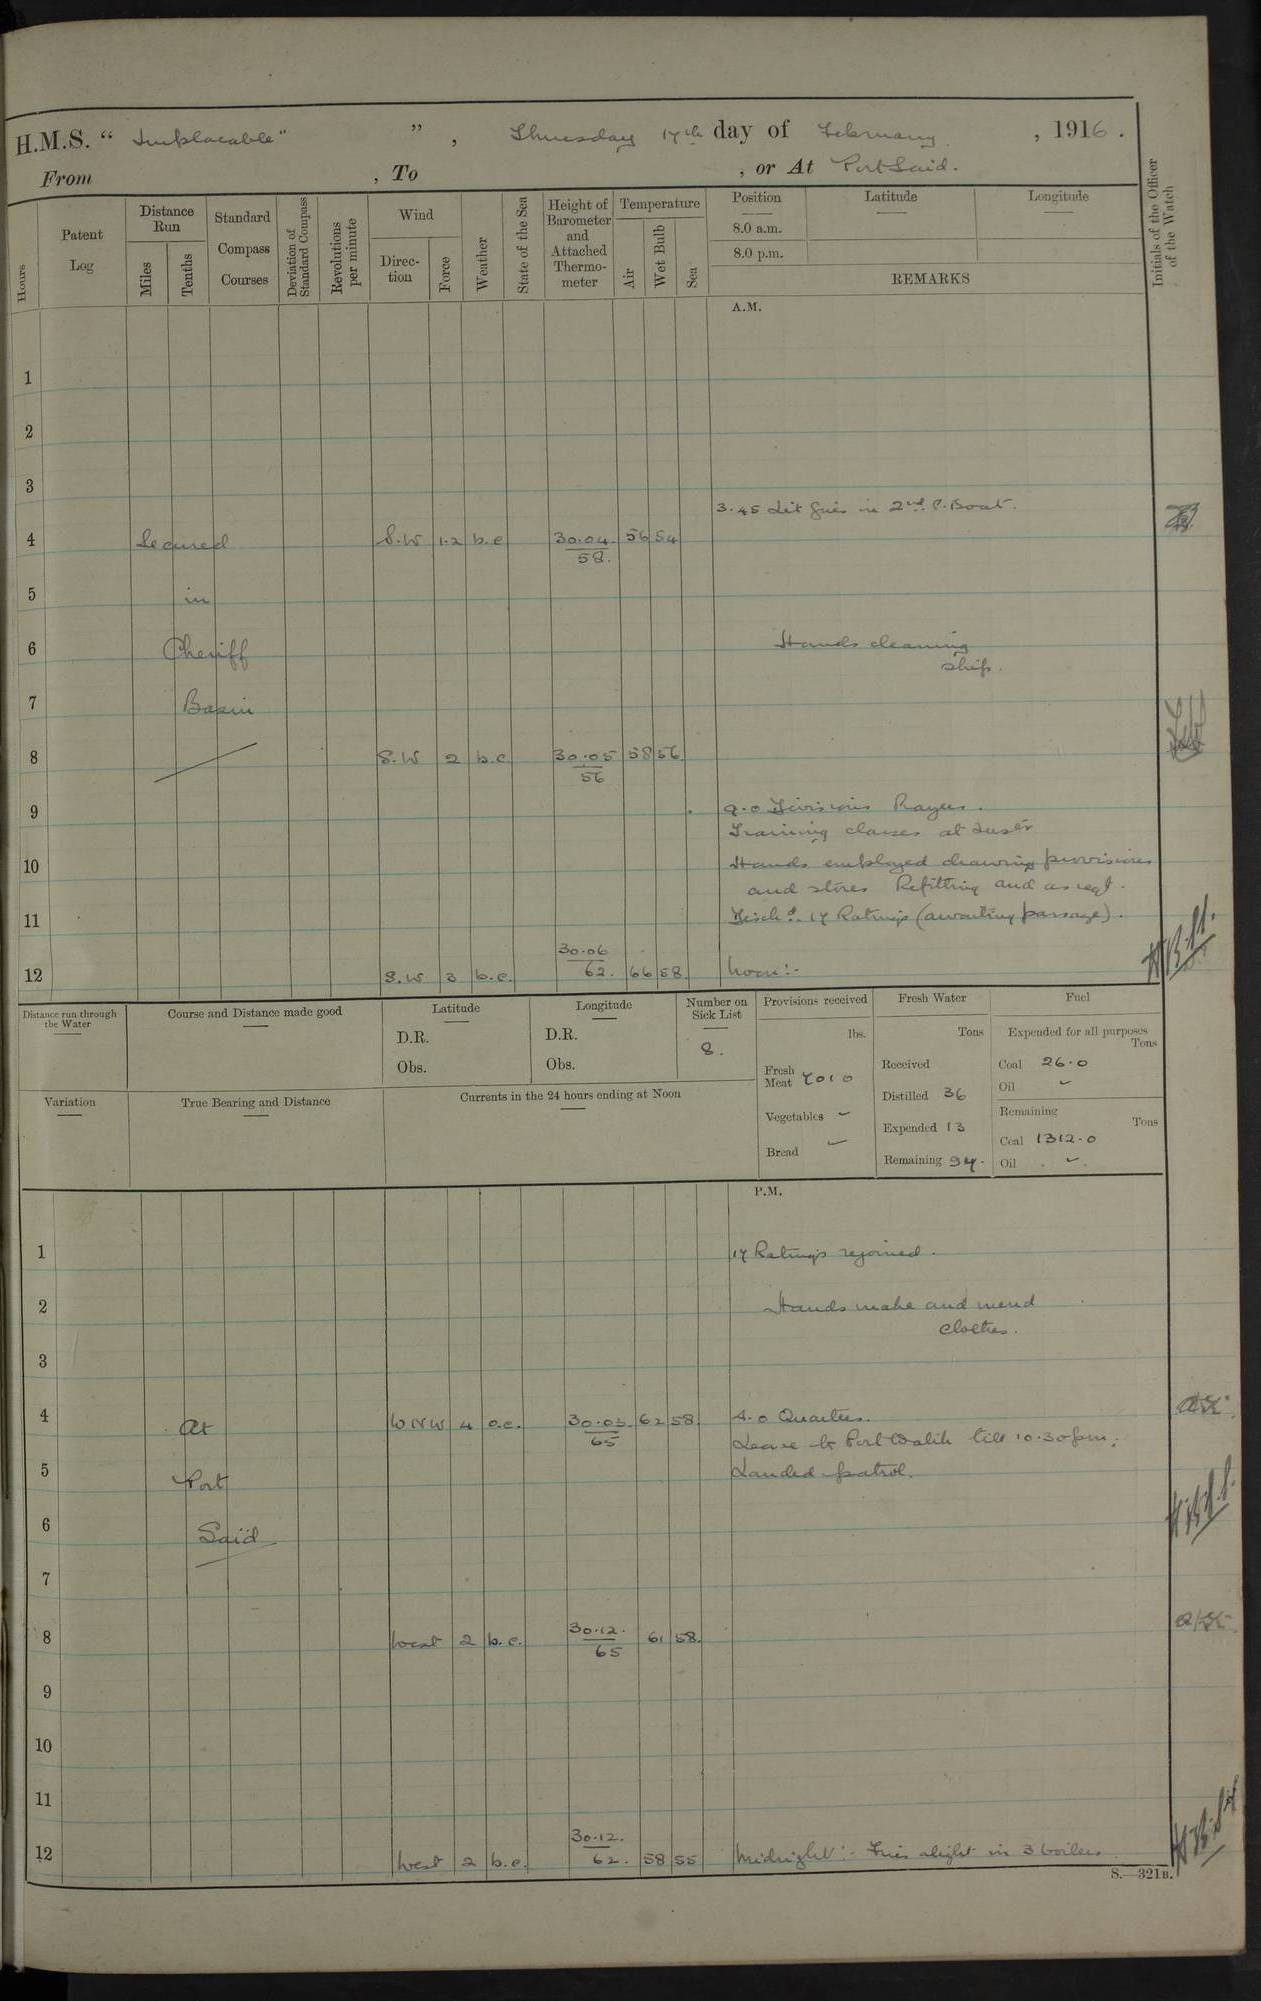 H.M.S. “ Implacable” ” , Thursday 17th day of February , 1916 .
From , To , or At Port Said.
Hours
Patent Log
Distance Run
Miles
Tenths
Standard Compass Courses
Deviation of Standard Compass
Revolutions per minute
Wind
Direction
Force
Weather
State of the Sea
Height of Barometer and Attached Thermometer
Temperature
Air
Wet Bulb
Sea
Position
8.0 a.m.
8.0 p.m.
Latitude
Longitude
REMARKS
Initials of the Officer of the Watch
A.M.
1
2
3
3.45 Lit fires in 2nd P. Boat.
4 Secured S.W 1.2 b.c 30.04. 56 54
58.
5 in
6 Cheriff Hands cleaning
ship.
7 Basin
8 S.W 2 b.c 30.05 58 56
56
9 9.0 Divisions Prayers.
Training classes at Instn
10 Hands employed drawing provisions
and stores Refitting and as reqd.
11 Disch.d 17 Ratings (awaiting passage).
12 S.W 3 b.c. 30.06 66 58. Noon:-
62.
Distance run through the Water
Course and Distance made good
Latitude
D.R.
Obs.
Longitude
D.R.
Obs.
Number on Sick List
8.
Provisions received
lbs.
Fresh Meat 7010
Vegetables ~
Bread ~
Fresh Water
Tons
Received
Distilled 36
Expended 13
Remaining 94.
Fuel
Expended for all purposes
Tons
Coal 26.0
Oil ~
Remaining
Tons
Coal 1312.0
Oil ~
Variation
True Bearing and Distance
Currents in the 24 hours ending at Noon
P.M.
1 17 Ratings rejoined.
2 Hands make and mend
clothes.
3
4 At WNW 4 o.c. 30.03. 62 58 4.0 Quarters.
65
Leave to Port Watch till 10.30pm.
5 Port Landed patrol.
6 Saïd
7
8 West 2 b.c. 30.12. 61 58.
65
9
10
11
12 West 2 b.c. 30.12. 58 55 Midnight:- Fires alight in 3 boilers.
62.
S.—321B.